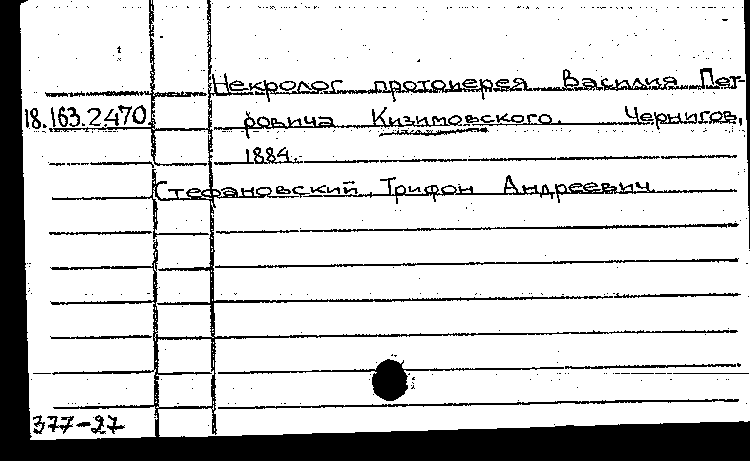 Некролог протоиерея Василия Пет-
18.163.2470. ровича Кизимовского. Чернигов,
1884.
Стефановский, Трифон Андреевич
377-27